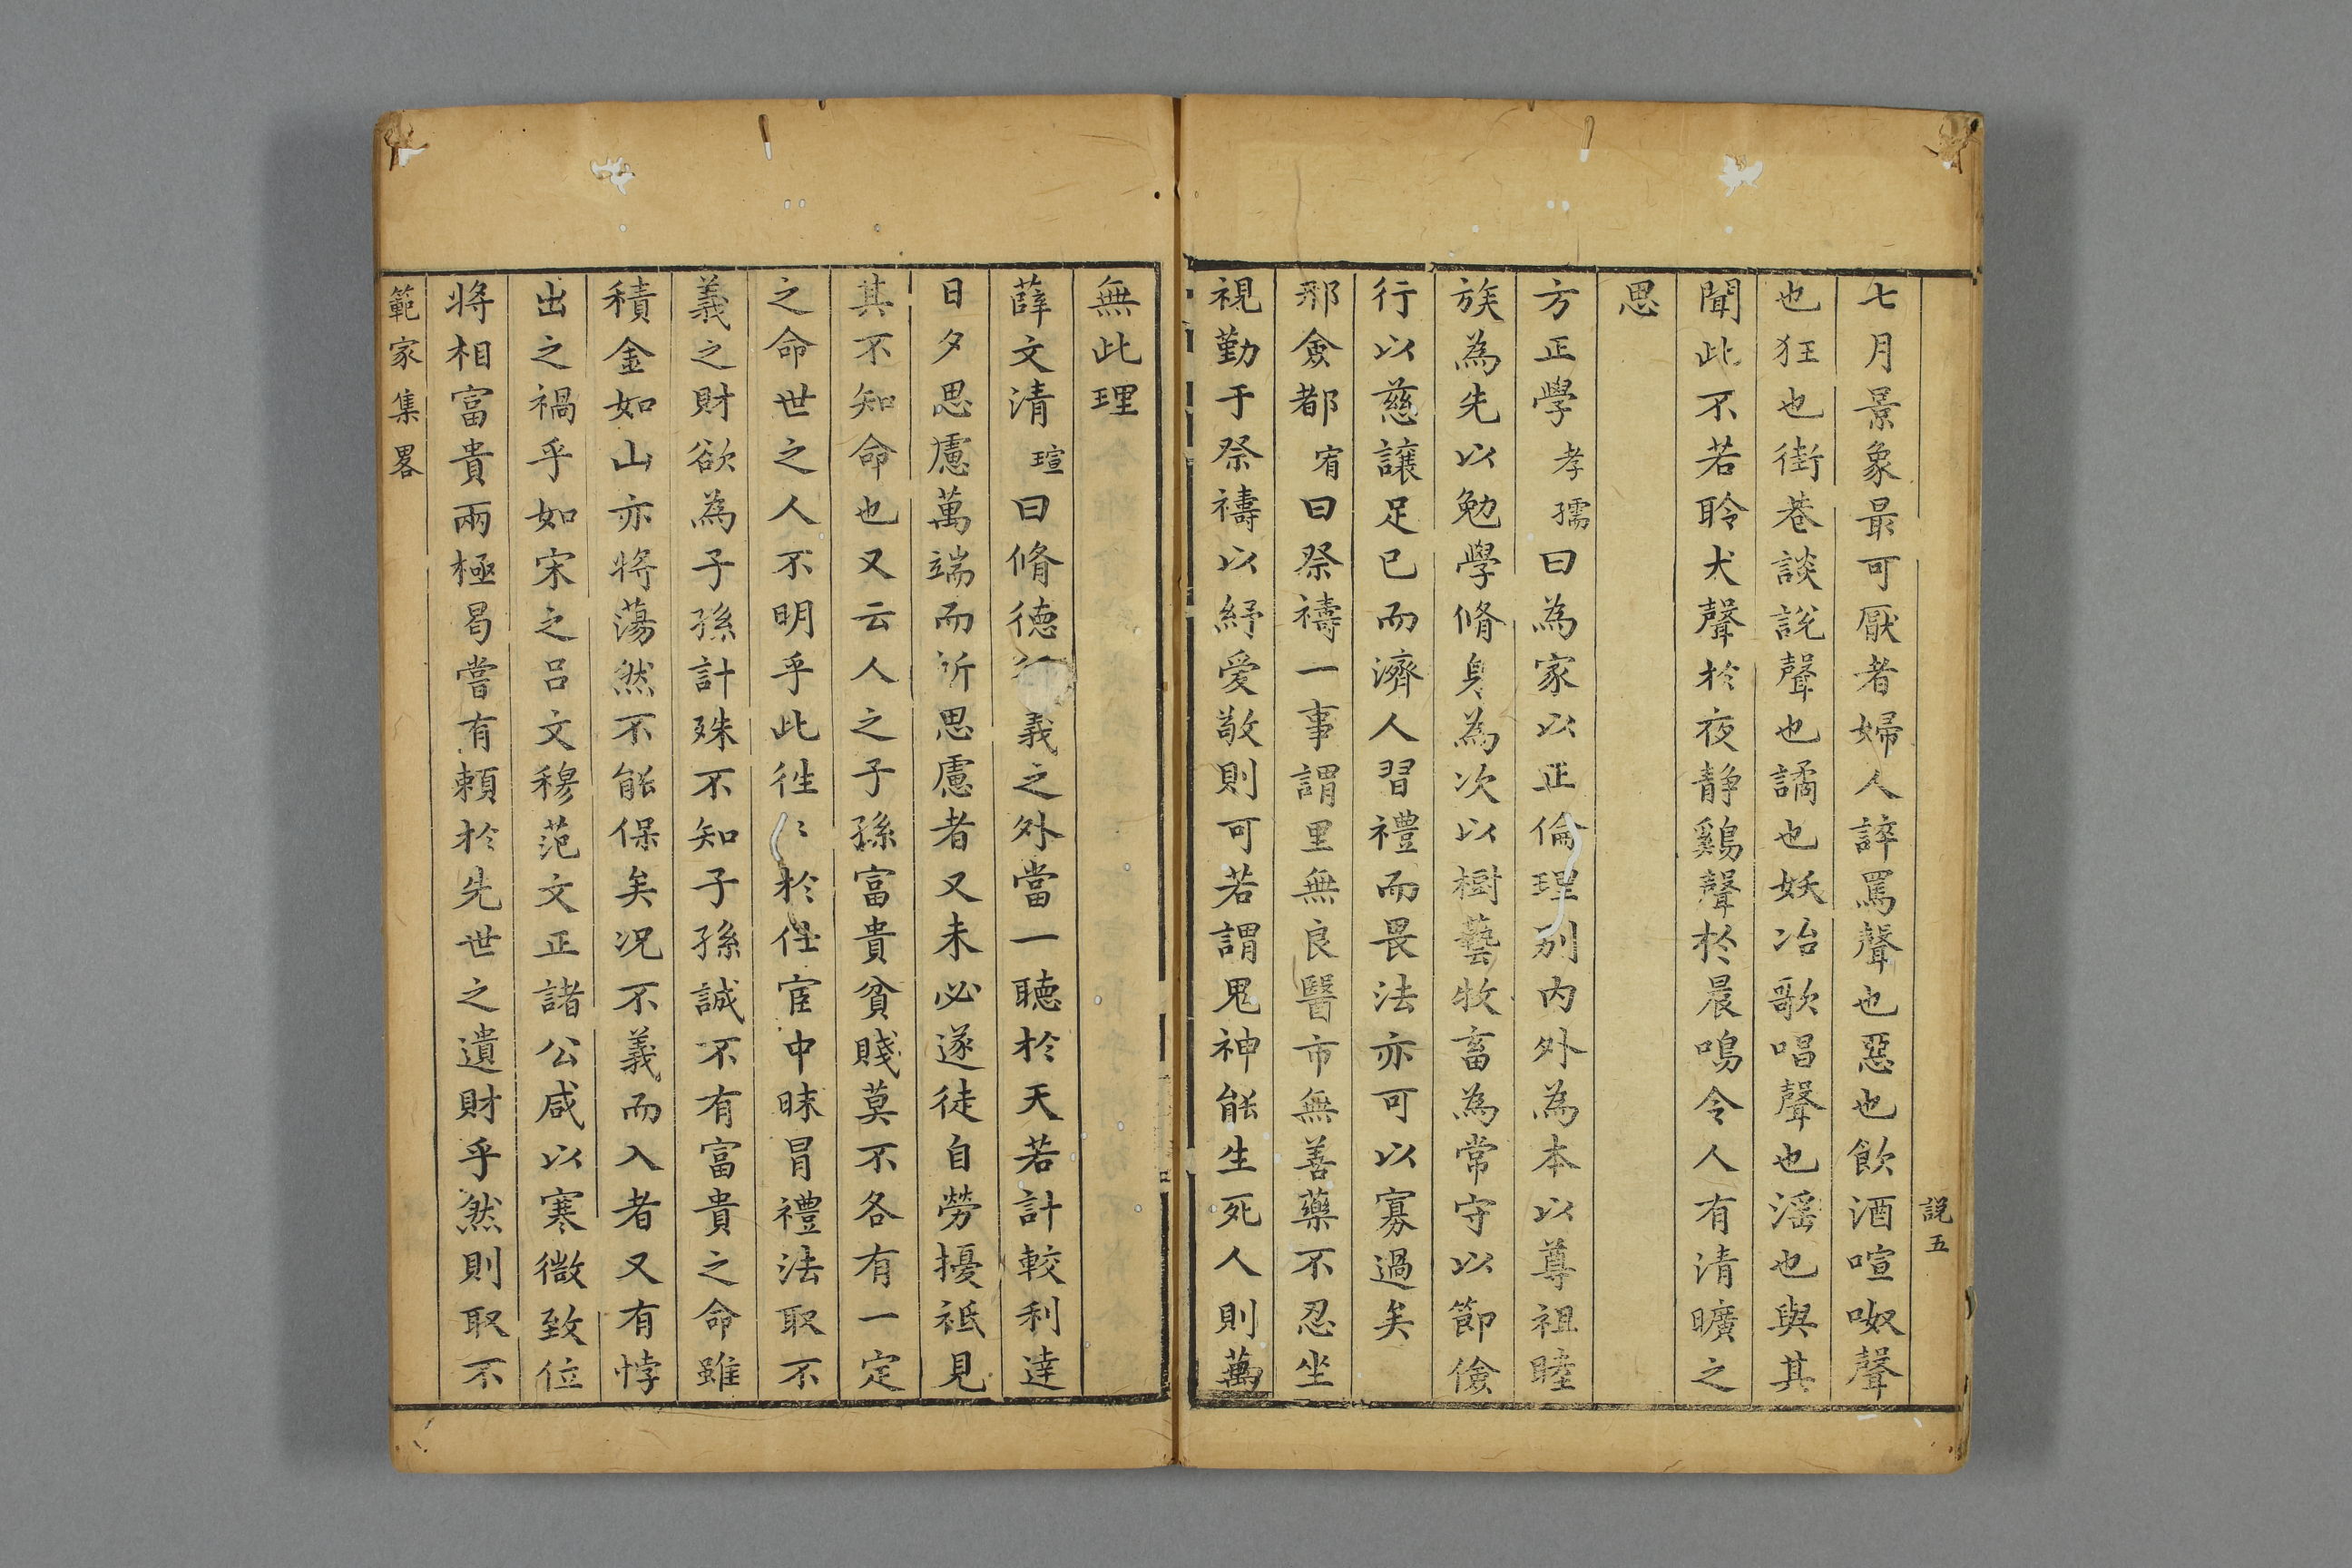 說五
七月景象最可厭者婦人誶罵聲也惡也飲酒喧呶聲
也狂也街巷談說聲也譎也妖冶歌唱聲也滛也與其
聞此不若聆犬聲於夜静鷄聲於晨鳴令人有清曠之
思
方正學孝孺曰為家以正倫理别内外為本以尊祖睦
族為先以勉學脩身為次以樹藝牧畜為常守以節儉
行以慈讓足已而濟人習禮而畏法亦可以寡過矣
邢僉都宥曰祭禱一事謂里無良醫市無善藥不忍坐
視勤于祭禱以紓愛敬則可若謂鬼神能生死人則萬
無此理
薛文清瑄曰脩德義之外當一聽於天若計較利達
日夕思慮萬端而所思慮者又未必遂徒自勞擾祗見
其不知命也又云人之子孫富貴貧賤莫不各有一定
之命世之人不明乎此徃〻於仕宦中昧冒禮法取不
義之財欲為子孫計殊不知子孫誠不有富貴之命雖
積金如山亦將蕩然不能保矣况不義而入者又有悖
出之禍乎如宋之呂文穆范文正諸公咸以寒微致位
將相富貴兩極曷嘗有頼於先世之遺財乎然則取不
範家集畧